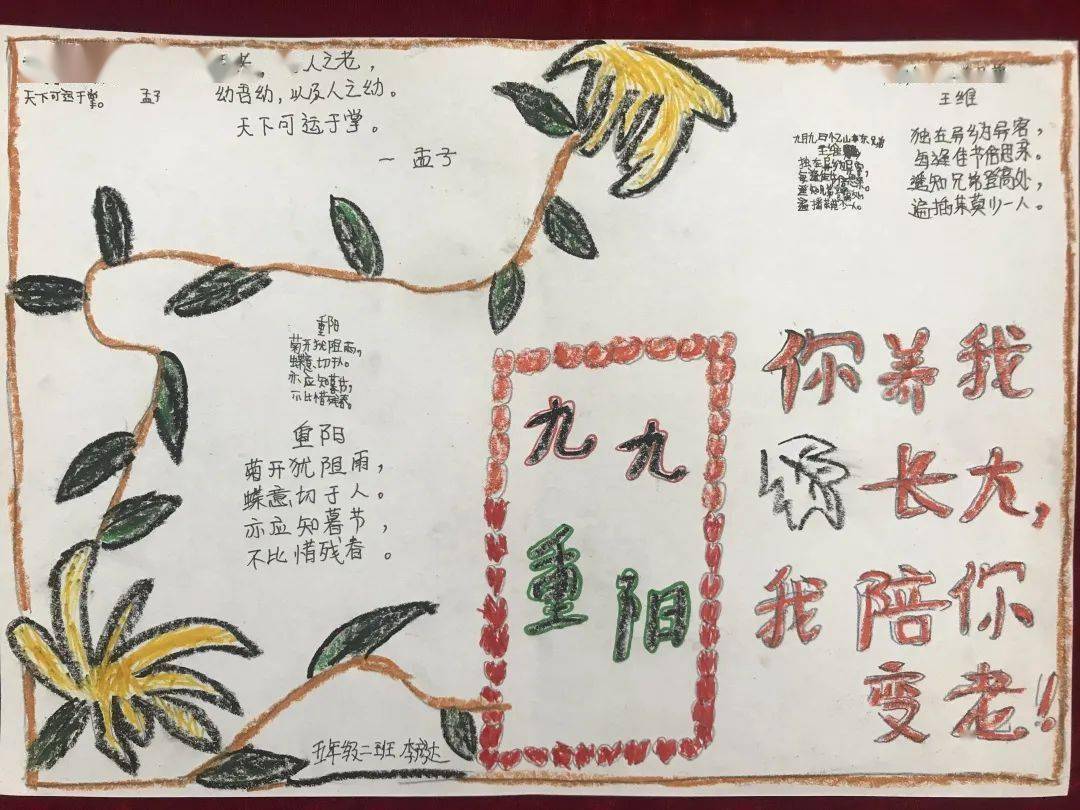 天下可运于掌。 孟子
人之老，
幼吾幼，以及人之幼。
天下可运于掌。
— 孟子
王维
独在异乡为异客，
每逢佳节倍思亲。
遥知兄弟登高处，
遍插茱萸少一人。
九月九日忆山东兄弟
王维
独在异乡
遍插 少一人。
重阳
菊开犹阻雨，
蝶意切于人。
亦应知暮节，
不比惜残春。
重阳
菊开犹阻雨，
蝶意切于人。
亦应知暮节，
不比惜残春。
九九
重阳
你养我
长大，
我陪你
变老！
五年级二班 李